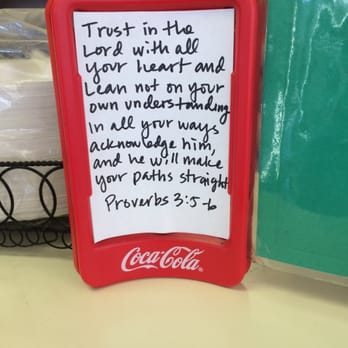 Trust in the
Lord with all
your heart and
Lean not on your
own understanding
In all your ways
acknowledge him,
and he will make
your paths straight
Proverbs 3:5-6
Coca-Cola